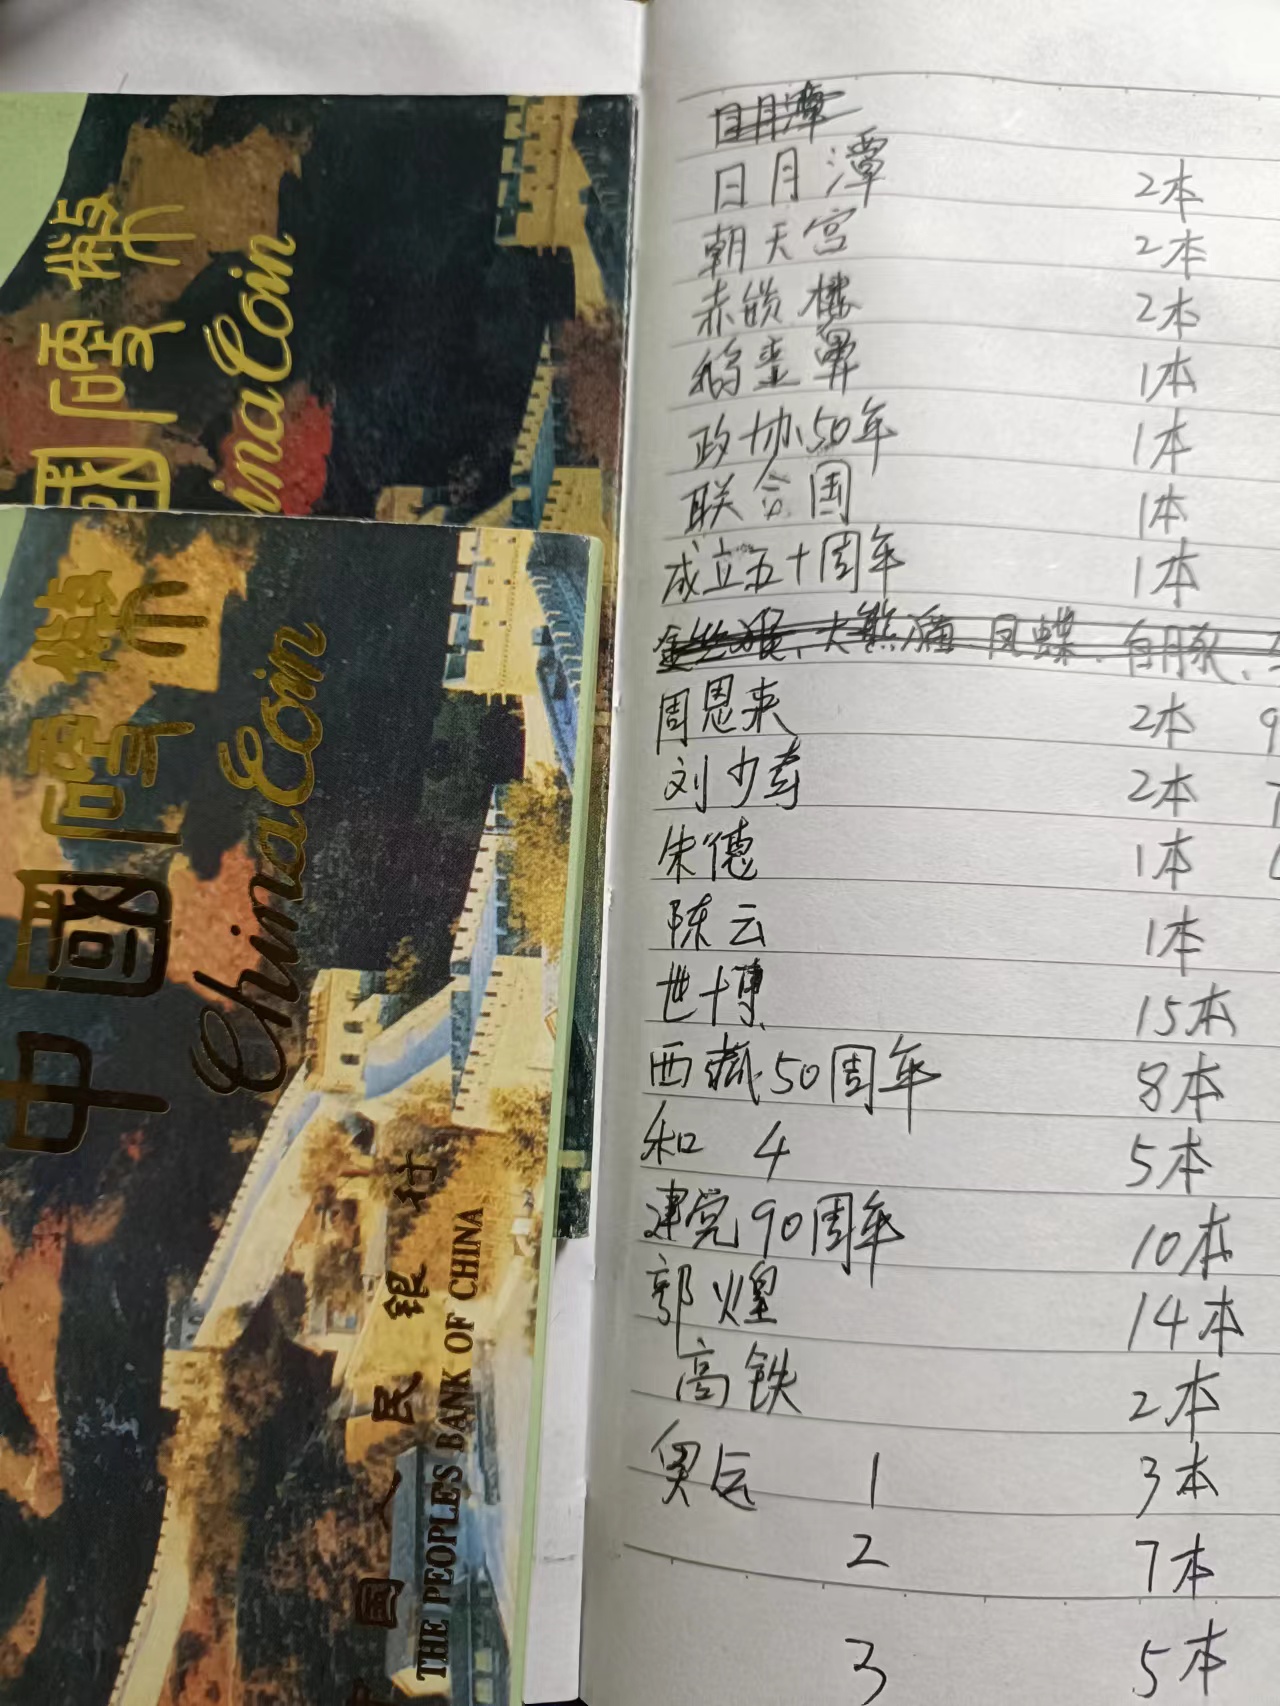 中國硬幣
China Coin
中國硬幣
China Coin
中國人民銀行
THE PEOPLES BANK OF CHINA
日月潭
日月潭 2本
朝天宫 2本
赤嵌楼 2本
鹅銮鼻 1本
政协50年 1本
联合国 1本
成立五十周年 1本
金丝猴、大熊猫 凤蝶、白月豚、
周恩来 2本 9
刘少奇 2本
朱德 1本
陈云 1本
世博 15本
西藏50周年 8本
和 4 5本
建党90周年 10本
郭煌 14本
高铁 2本
奥运 1 3本
2 7本
3 5本